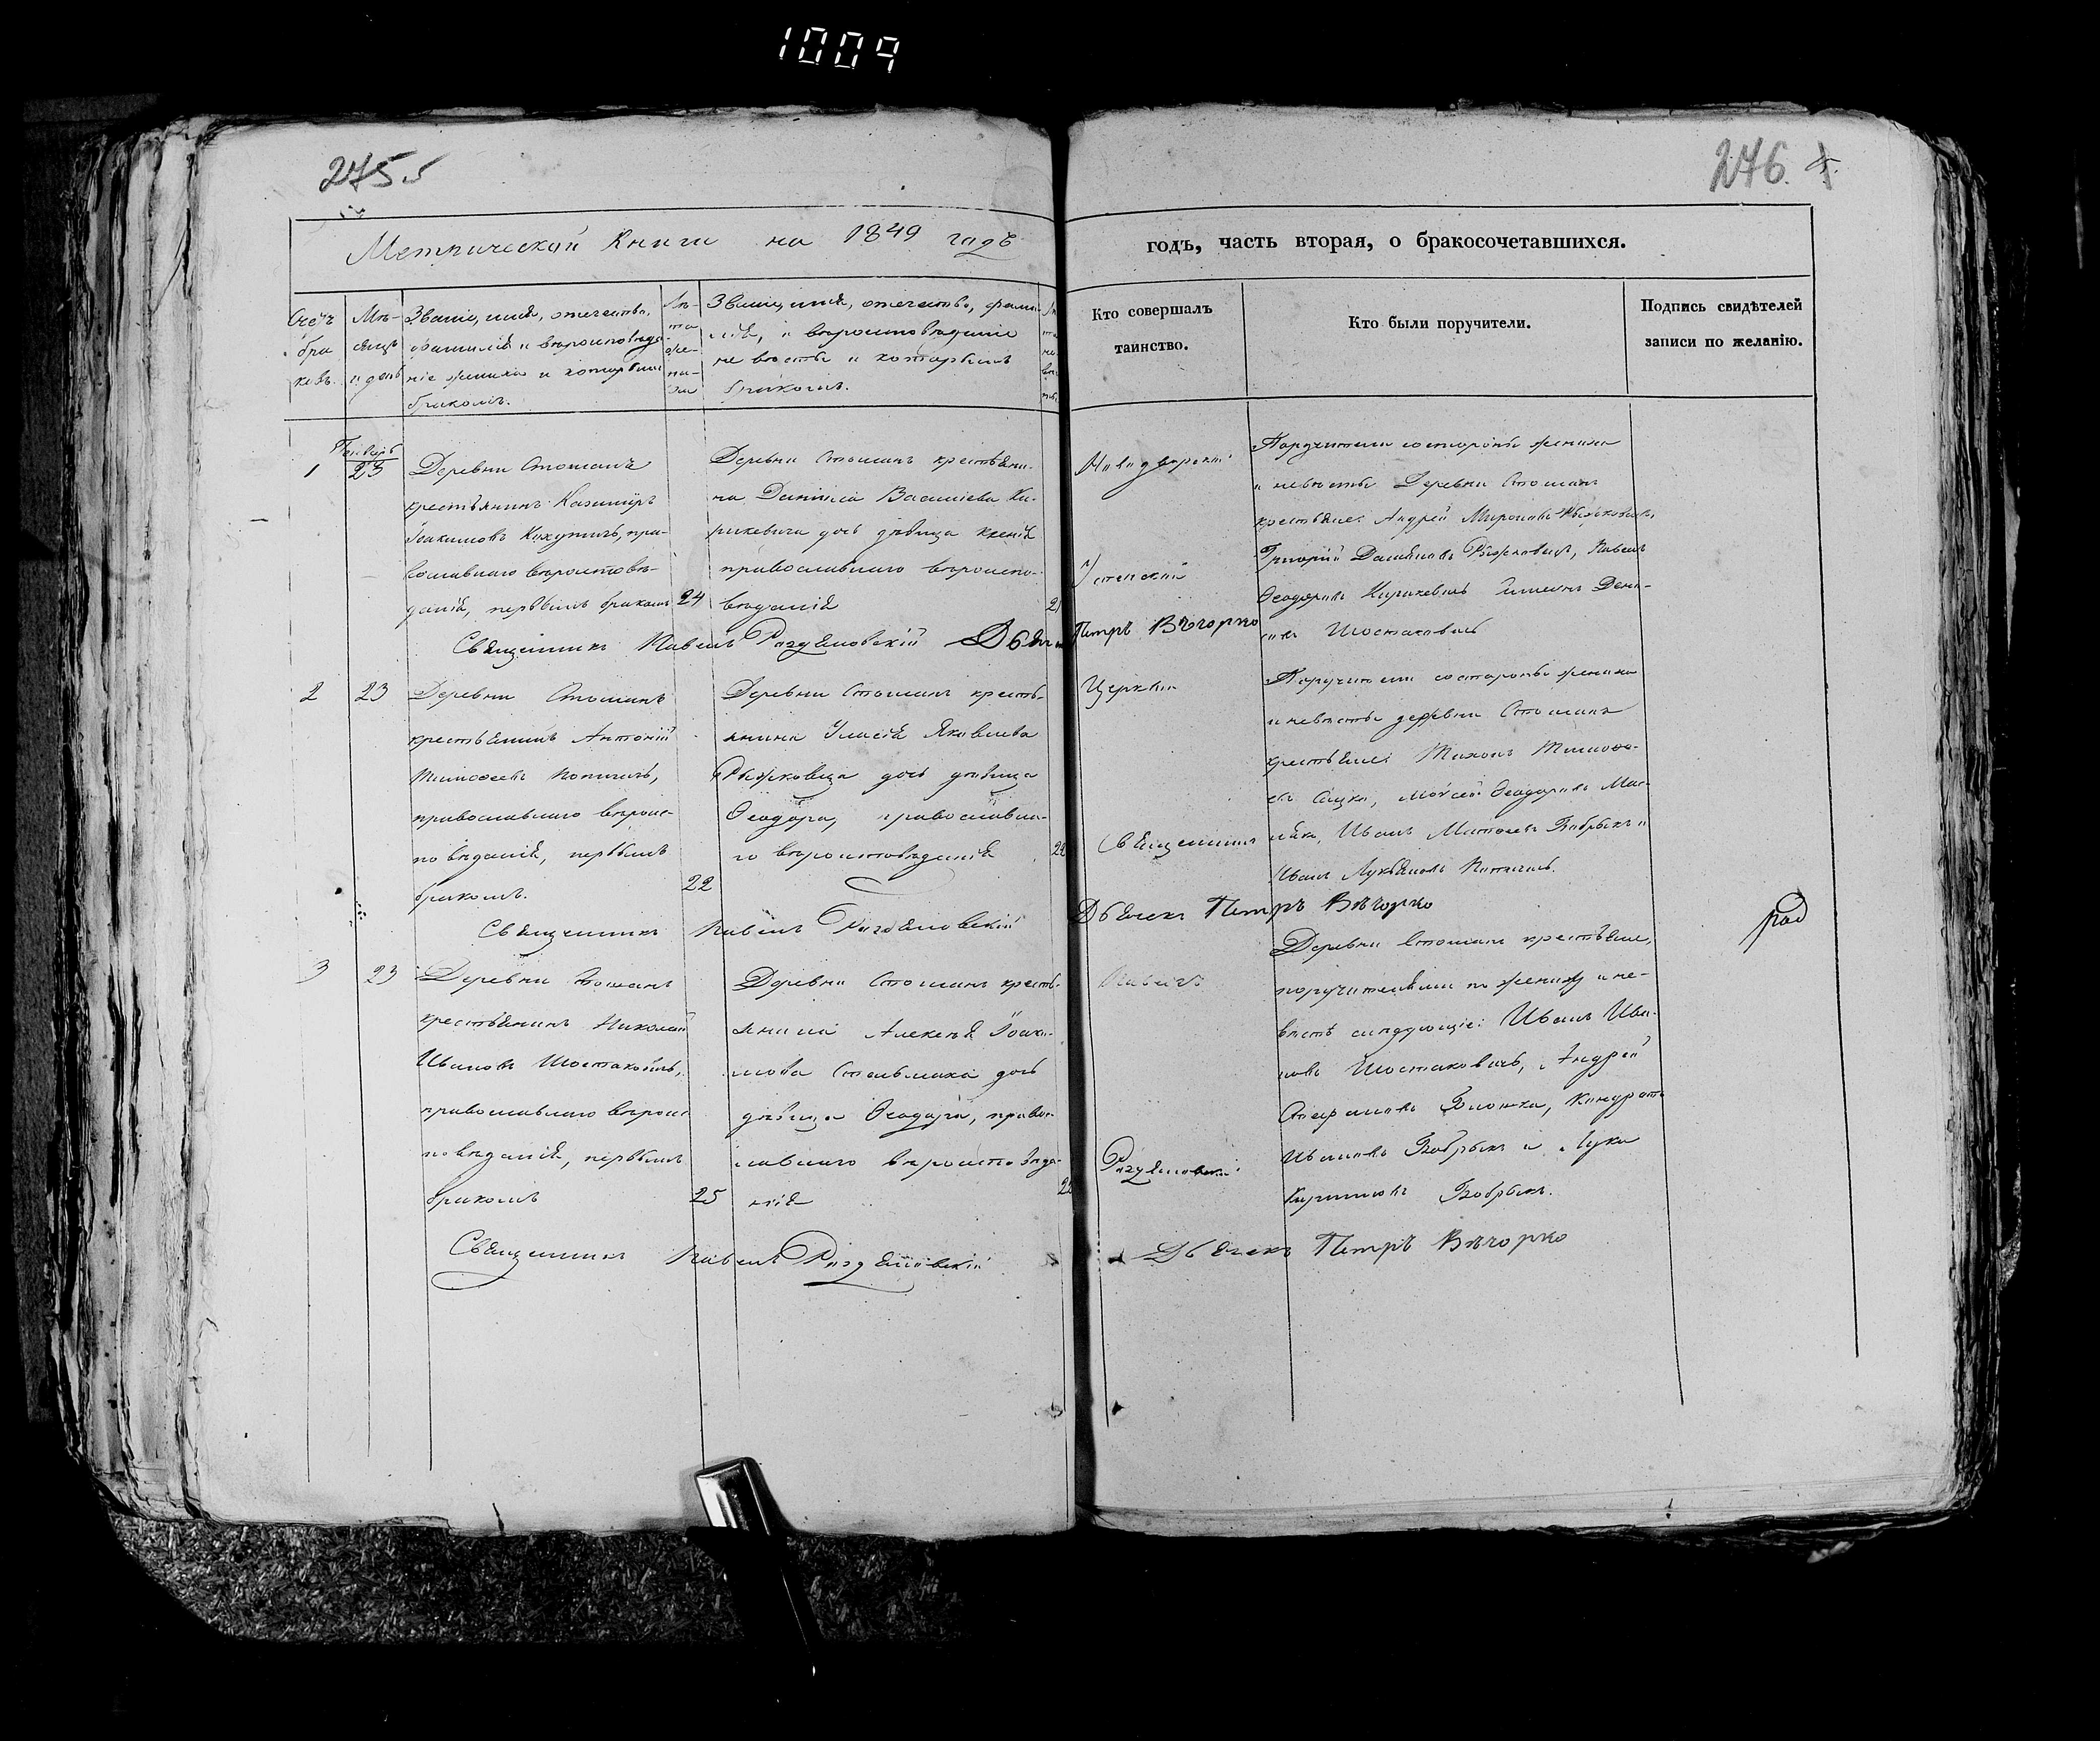 1009
275
276
Метрической Книги на 1849 годъ
годъ, часть вторая, о бракосочетавшихся.
Счетъ браковъ.
Мѣсяцъ и день
Званіе, имя, отечество,
фамилія и вѣроисповѣда-
ніе жениха и которымъ
бракомъ.
Лѣта жениха
Званіе, имя, отечество, фами-
лія, и вѣроисповѣданіе
невѣсты и которымъ
бракомъ.
Кто совершалъ
таинство.
Кто были поручители.
Подпись свидѣтелей
записи по желанію.
1
Генварь
23
Деревни Стошанъ
крестьянинъ Казимиръ
Іоакимовъ
православнаго вѣроисповѣ-
данія, первымъ бракомъ
24
Деревни Стошанъ крестьяни-
на Даниила Васильева Ки-
рикевича дочь дѣвица Ксенія
православнаго вѣроиспо-
вѣданія
21
Новодворскій
Успенской
Поручители со стороны жениха
и невѣсты Деревни Стошанъ
крестьяне: Андрей Мироновъ
Григорій Рыжковичъ, Павелъ
Ѳеодоровъ Кирикевичъ Симеонъ Дени-
совъ Шостаковичъ
Священникъ Павелъ Раздяловскій Дьячекъ Петръ Вѣчорко
2
23
Деревни Стошанъ
крестьянинъ Антоній
Тимоѳеевъ Попичъ,
православнаго вѣроис-
повѣданія, первымъ
бракомъ.
22
Деревни Стошанъ кресть-
янина Яковлева
Рыжковца дочь дѣвица
Ѳеодора, православна-
го вѣроисповѣданія
22
Церкви
Священникъ
Поручители со стороны жениха
и невѣсты деревни Стошанъ
крестьяне: Тихонъ Тимоѳе-
евъ Моисей Ѳеодоровъ
Иванъ Бобрыкъ и
Иванъ Лукьяновъ
Священникъ Павелъ Раздяловскій
Дьячекъ Петръ Вѣчорко
3
23
Деревни Стошанъ
крестьянинъ Николай
Ивановъ Шостаковичъ,
православнаго вѣроис-
повѣданія, первымъ
бракомъ
25
Деревни Стошанъ кресть-
янина Алексѣя Іоаки-
мова Стельмаха дочь
дѣвица Ѳеодора, право-
славнаго вѣроисповѣда-
нія
Павелъ
Раздяловскій
Деревни Стошанъ крестьяне,
поручителями по женихѣ и не-
вѣстѣ слѣдующіе: Иванъ Ива-
новъ Шостаковичъ, Андрей
Стефановъ Кондратъ
Ивановъ Бобрыкъ и Лука
Бобрыкъ.
Священникъ Павелъ Раздяловскій
Дьячекъ Петръ Вѣчорко